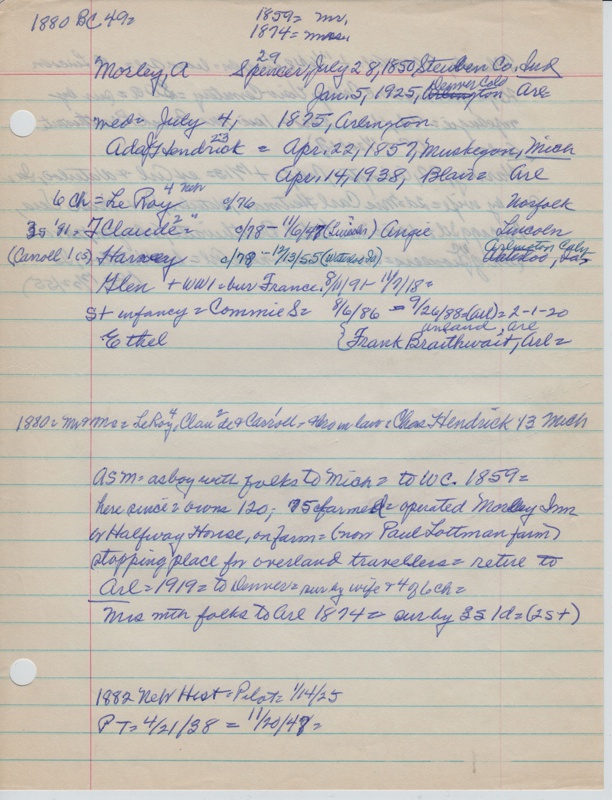 1880 BC 49=
1859= mr.
1874= mrs.
29
Morley, A Spencer, July 28, 1850 Steuben Co. Ind
Denver Colo
Jan. 5, 1925, Arlington Arl
med= July 4, 1875, Arlington
23
Ada Hendrick = Apr. 22, 1857, Muskegon, Mich
Apr. 14, 1938, Blair= Arl
6 ch = Le Roy 4 Neb c/76 Norfolk
3s '91= F Claude 2 " c/78 - 11/6/47 (Lincoln) Angie Lincoln
(Carroll 1 (s) Harvey c/78 - 12/13/55 (Waterloo Ia) Arlington Calif
Waterloo, Ia
Glen + WW1= bur France. 8/11/91 - 11/7/18=
st infancy = Commie S= 8/6/86 - 9/26/88 (Arl) = 2-1-20
unland, Arl
Ethel { Frank Braithwait, Arl=
1880= Mr & Mrs = LeRoy 4, Claude 2 & Carroll - bro in law = Chas Hendrick 43 Mich
ASM= as boy with folks to Mich = to WC. 1859=
here since = owns 120; 75 c farmed = operated Morley Inn
or Halfway House, on farm = (now Paul Lottman farm)
stopping place for overland travellers = retire to
Arl = 1919 = to Denver = sur by wife & 4 of 6 ch =
Mrs mth folks to Arl 1874 = sur by 3s 1d = (2s+)
1882 New Hist = Pilot = 1/14/25
PT= 4/21/38 = 11/20/47=